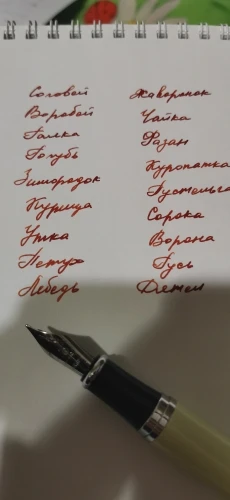 Соловей
Воробей
Галка
Голубь
Зимородок
Курица
Утка
Петух
Лебедь
Жаворонок
Чайка
Фазан
Куропатка
Пустельга
Сорока
Ворона
Гусь
Дятел